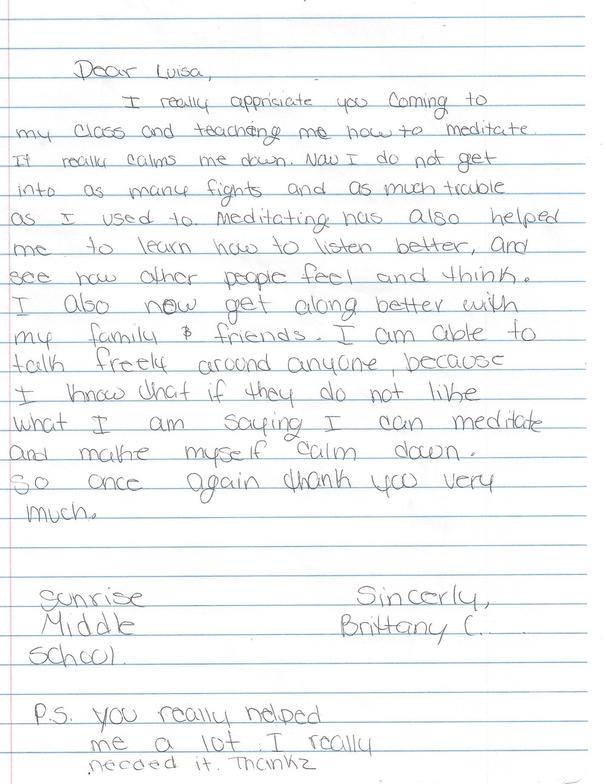 Dear Luisa,
I really apprisiate you coming to
my class and teaching me how to meditate.
It really calms me down. Now I do not get
into as many fights and as much trouble
as I used to. Meditating has also helped
me to learn how to listen better, and
see how other people feel and think.
I also now get along better with
my family & friends. I am able to
talk freely around anyone, because
I know that if they do not like
what I am saying I can meditate
and make myself calm down.
So once again thank you very
much.
Sunrise Sincerly,
Middle Brittany C.
School.
P.S. you really helped
me a lot. I really
needed it. Thankz